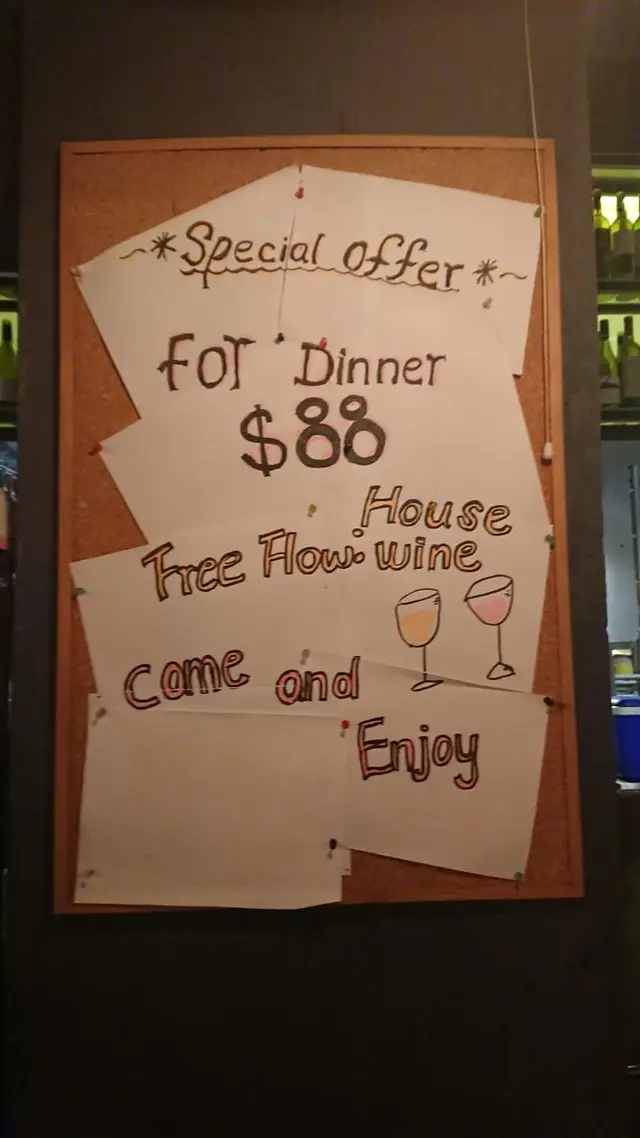 ~*Special offer*~
For Dinner
$88
House
Free Flow: wine
Come and
Enjoy